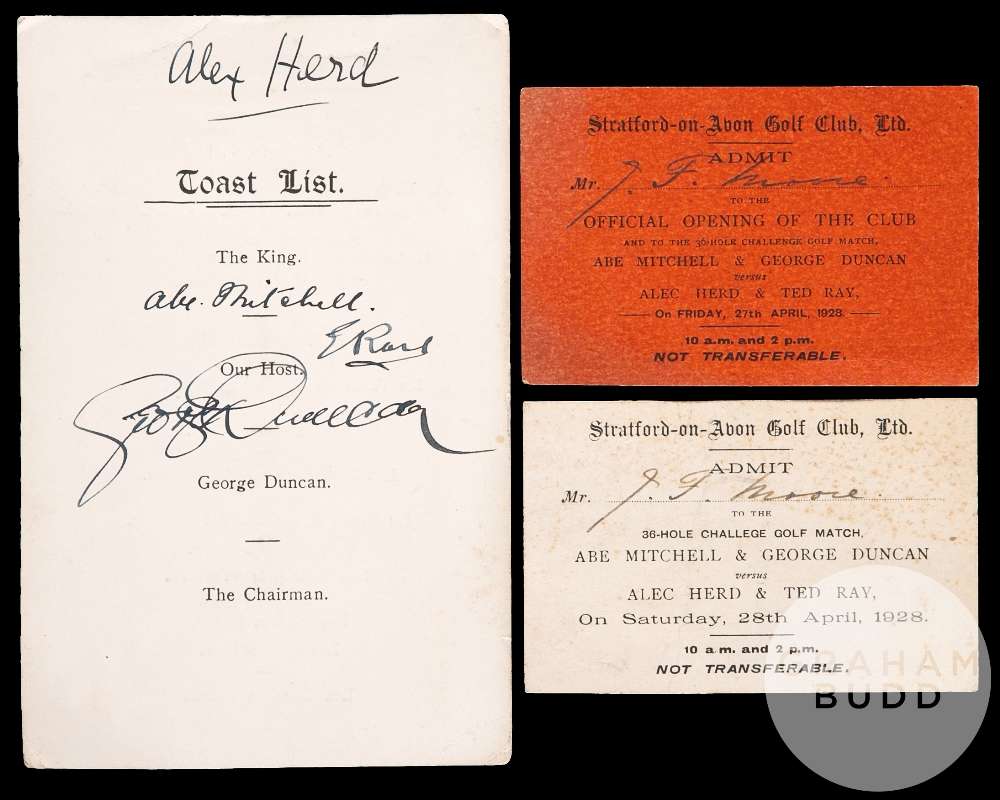 Alex Herd
Toast List.
The King.
Abe. Mitchell.
E Ray
Our Host.
George Duncan
George Duncan.
The Chairman.
Stratford-on-Avon Golf Club, Ltd.
ADMIT
Mr. J. F. Moore.
TO THE
OFFICIAL OPENING OF THE CLUB
AND TO THE 36-HOLE CHALLENGE GOLF MATCH,
ABE MITCHELL & GEORGE DUNCAN
versus
ALEC HERD & TED RAY,
On FRIDAY, 27th APRIL, 1928.
10 a.m. and 2 p.m.
NOT TRANSFERABLE.
Stratford-on-Avon Golf Club, Ltd.
ADMIT
Mr. J. F. Moore.
TO THE
36-HOLE CHALLEGE GOLF MATCH,
ABE MITCHELL & GEORGE DUNCAN
versus
ALEC HERD & TED RAY,
On Saturday, 28th April, 1928.
10 a.m. and 2 p.m.
NOT TRANSFERABLE.
GRAHAM
BUDD